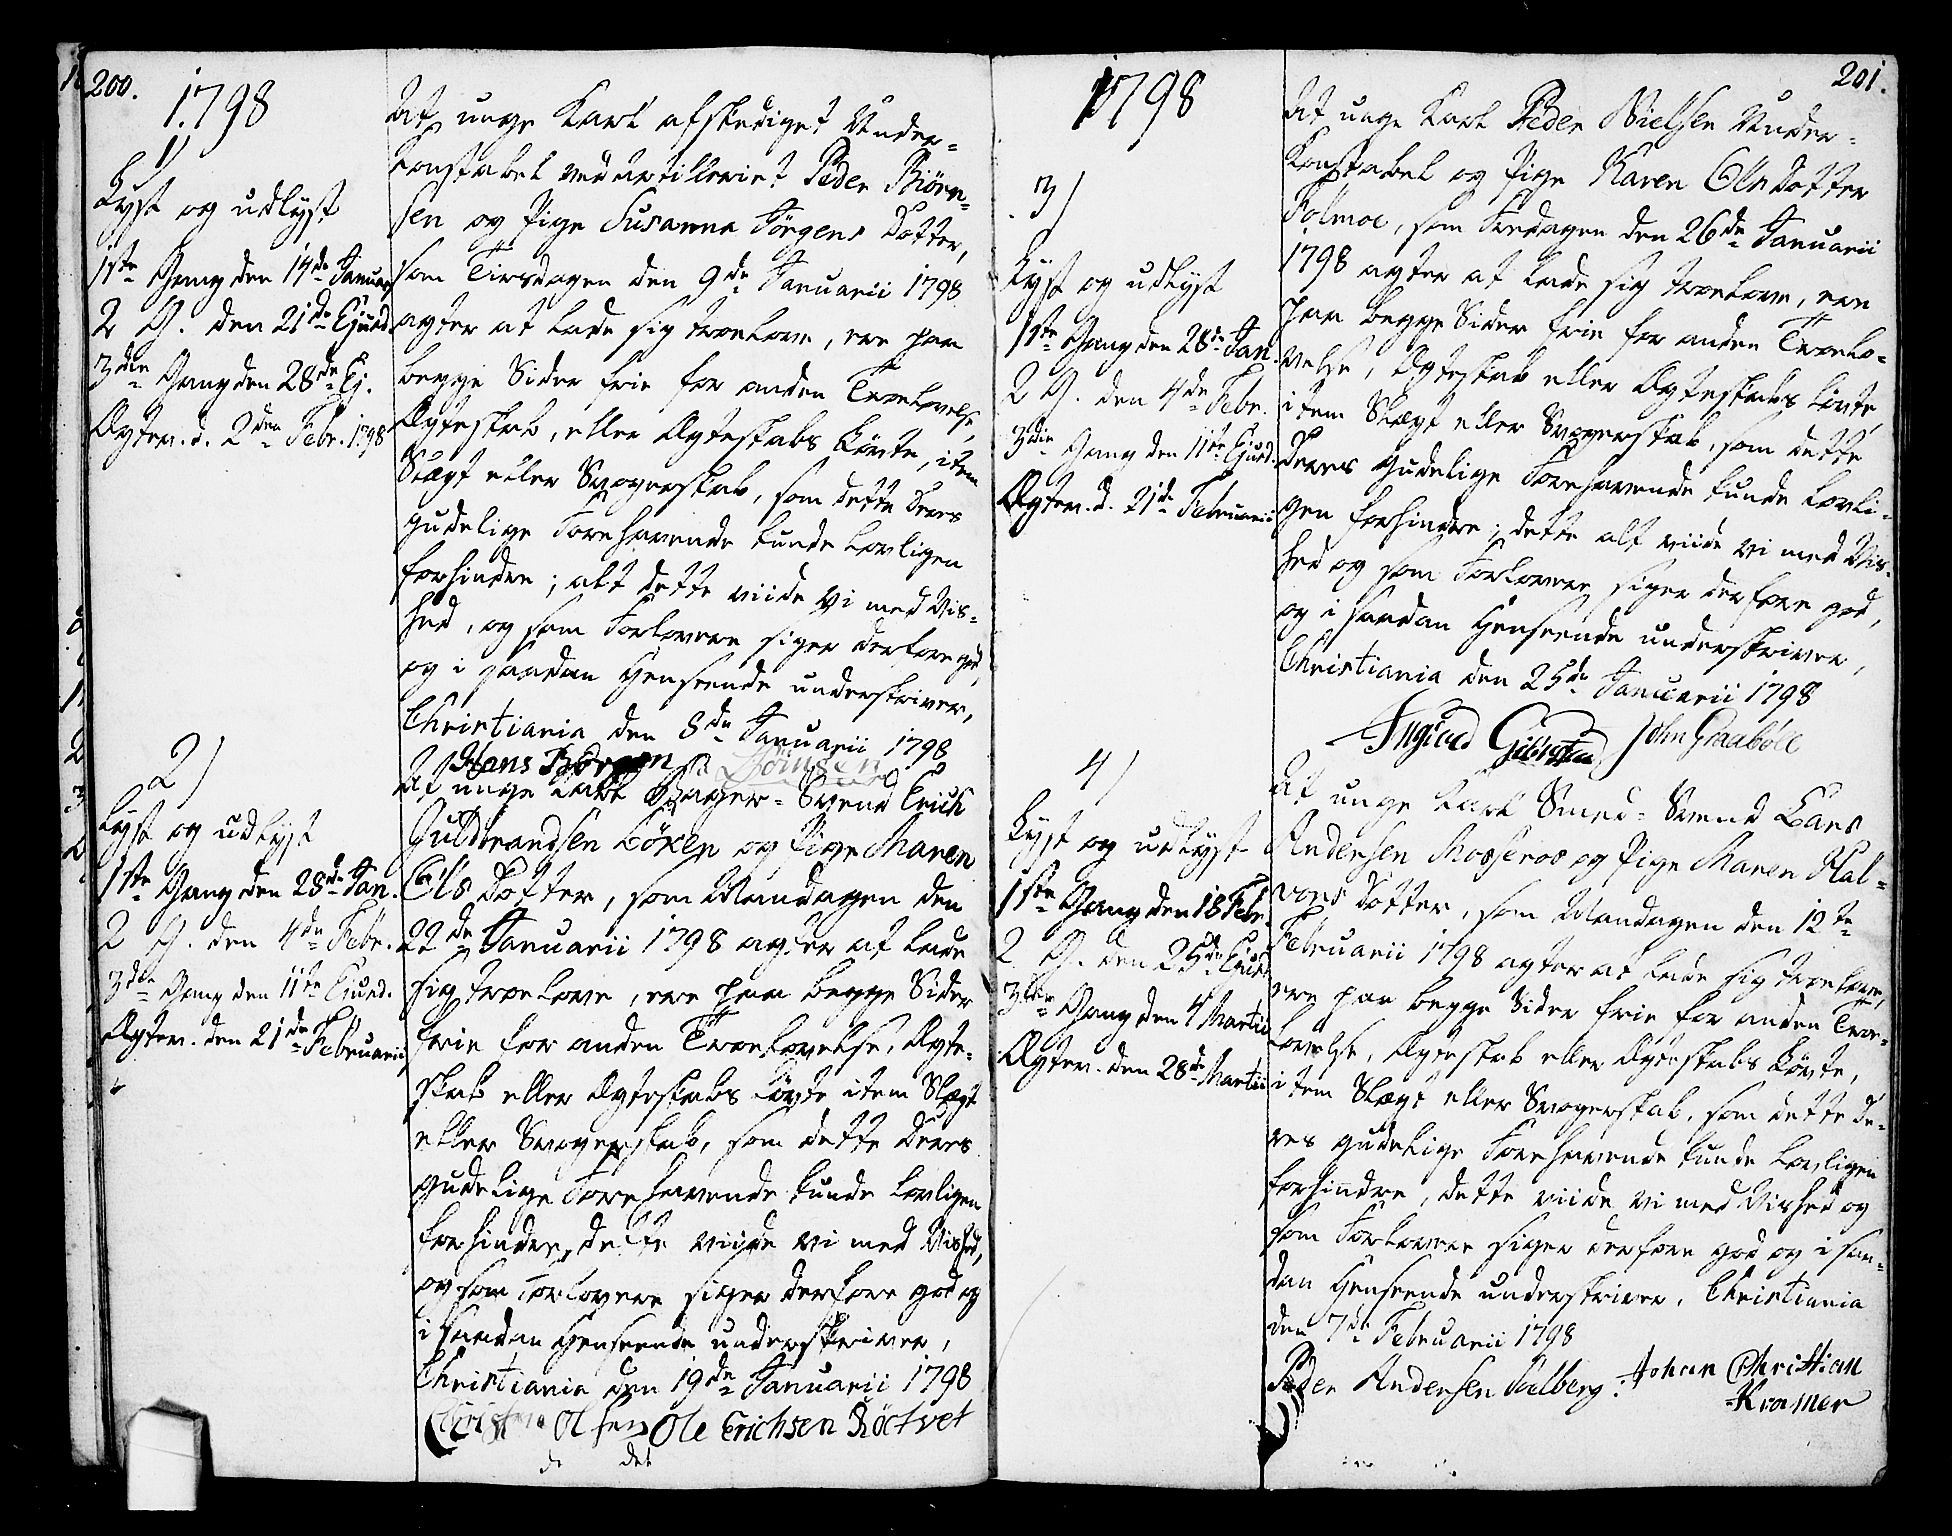 200.
1798
1)
Lyst og udlyst
1ste Gang den 14de Januar
2 G. den 21de Ejusd.
3die Gang den 28de Ej.
Ægtev. d. 2den Febr. 1798
At unge Karl afskediget Under=
konstabel ved Artilleriet Peder Biörn=
sen og Pige Susanna Jörgens Dotter,
som Tirsdagen den 9de Januarii 1798
agter at lade sig troelove, ere paa
begge Sider frie for anden Troelovelse,
Ægteskab, eller Ægteskabs Lövte, item
Slægt eller Svogerskab, som dette deres
gudelige Forehavende kunde lovligen
forhindre; alt dette viide vi med Vis=
hed, og som Forlovere siger derfore god,
og i saadan Henseende underskriver,
Christiania den 8de Januarii 1798
Hans Börgen
2)
Lyst og udlyst
1ste Gang den 28de Jan.
2 G. den 4de Febr.
3die Gang den 11te Ejusd.
Ægtev. den 21de Februarii
At unge Karl Bager=Svend Erich
Guldbrandsen Löken og Pige Maren
Ols Dotter, som Mandagen den
22de Januarii 1798 agter at lade
sig troelove, ere paa begge Sider
frie for anden Troelovelse, Ægte=
skab eller Ægteskabs Lövte item Slægt
eller Svogerskab, som dette deres
gudelige Forehavende kunde lovligen
forhindre, dette viide vi med Vished,
og som Forlovere siger derfore god og
i saadan Henseende underskriver,
Christiania den 19de Januarii 1798
Christen Olsen Ole Erichsen Röctvet
1798
3)
Lyst og udlyst
1ste Gang den 28de Jan.
2 G. den 4de Febr.
3die Gang den 11te Ejusd.
Ægtev. d. 21de Februarii
201.
At unge Karl Peder Nielsen Under=
konstabel og Pige Karen Olsdotter
Folmoe, som Fredagen den 26de Januarii
1798 agter at lade sig troelove, ere
paa begge Sider frie for anden Troelo=
velse, Ægteskab eller Ægteskabs Lövte,
item Slægt eller Svogerskab, som dette
deres gudelige Forehavende kunde lovli=
gen forhindre; dette alt viide vi med Vis=
hed og som Forlovere siger derfore god,
og i saadan Henseende underskriver,
Christiania den 25de Januarii 1798
John Graaböll
4)
Lyst og udlyst
1ste Gang den 18 Febr.
2 G. den 25de Ejusd
3die Gang den 4 Martii
Ægtev. den 28de Martii
At unge Karl Smed=Svend Lars
Andersen Mosseroe og Pige Maren Hal=
vors Dotter, som Mandagen den 12te
Februarii 1798 agter at lade sig troelove,
ere paa begge Sider frie for anden Troe=
lovelse, Ægteskab eller Ægteskabs Lövte,
item Slægt eller Svogerskab, som dette de=
res gudelige Forehavende kunde lovligen
forhindre, dette viide vi med Vished og
som Forlovere siger derfore god og i saa=
dan Henseende underskriver, Christiania
den 7de Februarii 1798
Peder Andersen Solberg. Johan Christian
Kramer